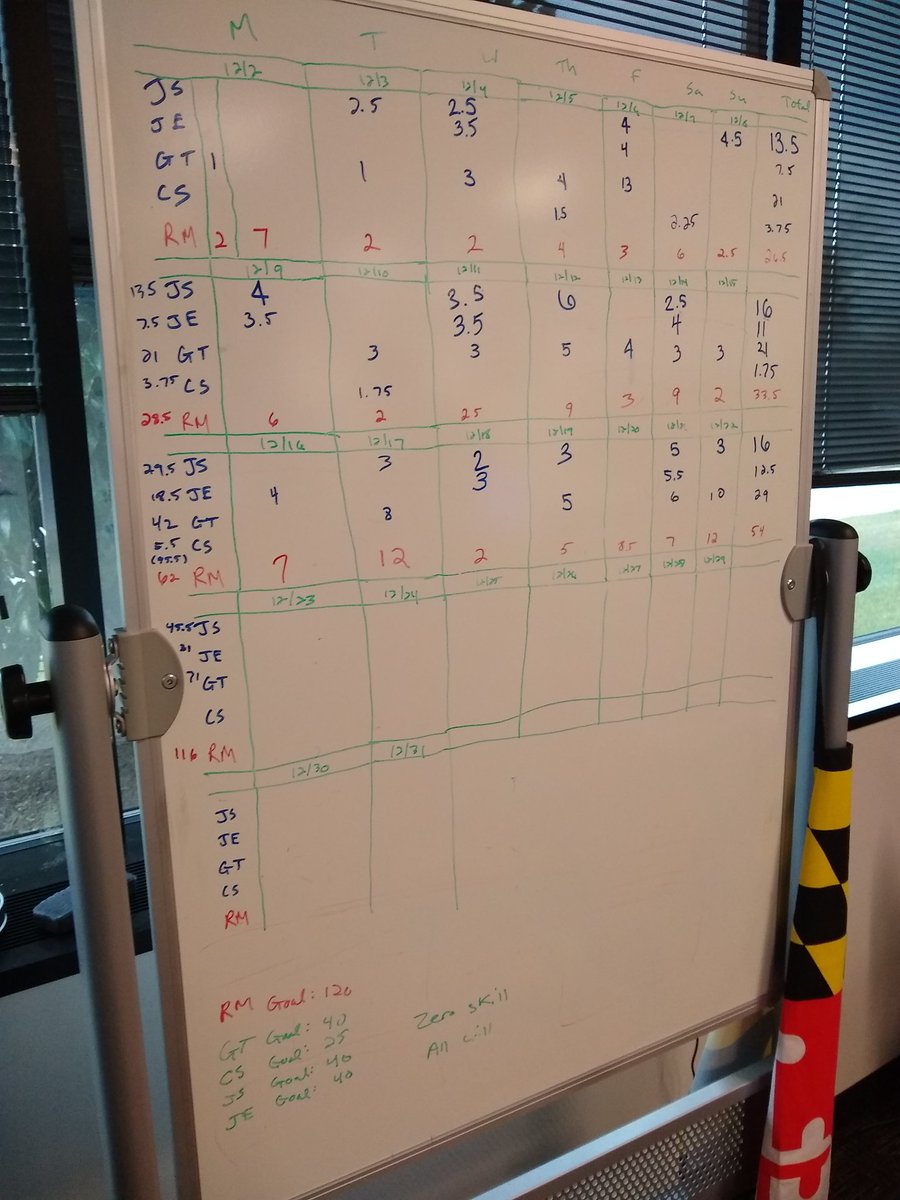 M T W Th F Sa Su Total
12/2 12/3 12/4 12/5 12/6 12/7 12/8
JS 2.5 2.5 4 4.5 13.5
JE 3.5 4 7.5
GT 1 1 3 4 13 21
CS 1.5 2.25 3.75
RM 2 7 2 2 4 3 6 2.5
12/9 12/10 12/11 12/12 12/13 12/14 12/15
13.5 JS 4 3.5 6 2.5 16
7.5 JE 3.5 3.5 4 11
21 GT 3 3 5 4 3 3 21
3.75 CS 1.75 1.75
28.5 RM 6 2 2.5 9 3 9 2 33.5
12/16 12/17 12/18 12/19 12/20 12/21 12/22
29.5 JS 3 2 3 5 3 16
18.5 JE 4 3 5.5 12.5
42 GT 8 5 6 10 29
5.5 CS
(95.5)
62 RM 7 12 2 5 8.5 7 12 54
12/23 12/24 12/25 12/26 12/27 12/28 12/29
45.5 JS
31 JE
71 GT
CS
116 RM
12/30 12/31
JS
JE
GT
CS
RM
RM Goal: 120
GT Goal: 40
CS Goal: 25
JS Goal: 40
JE Goal: 40
Zero skill
All will